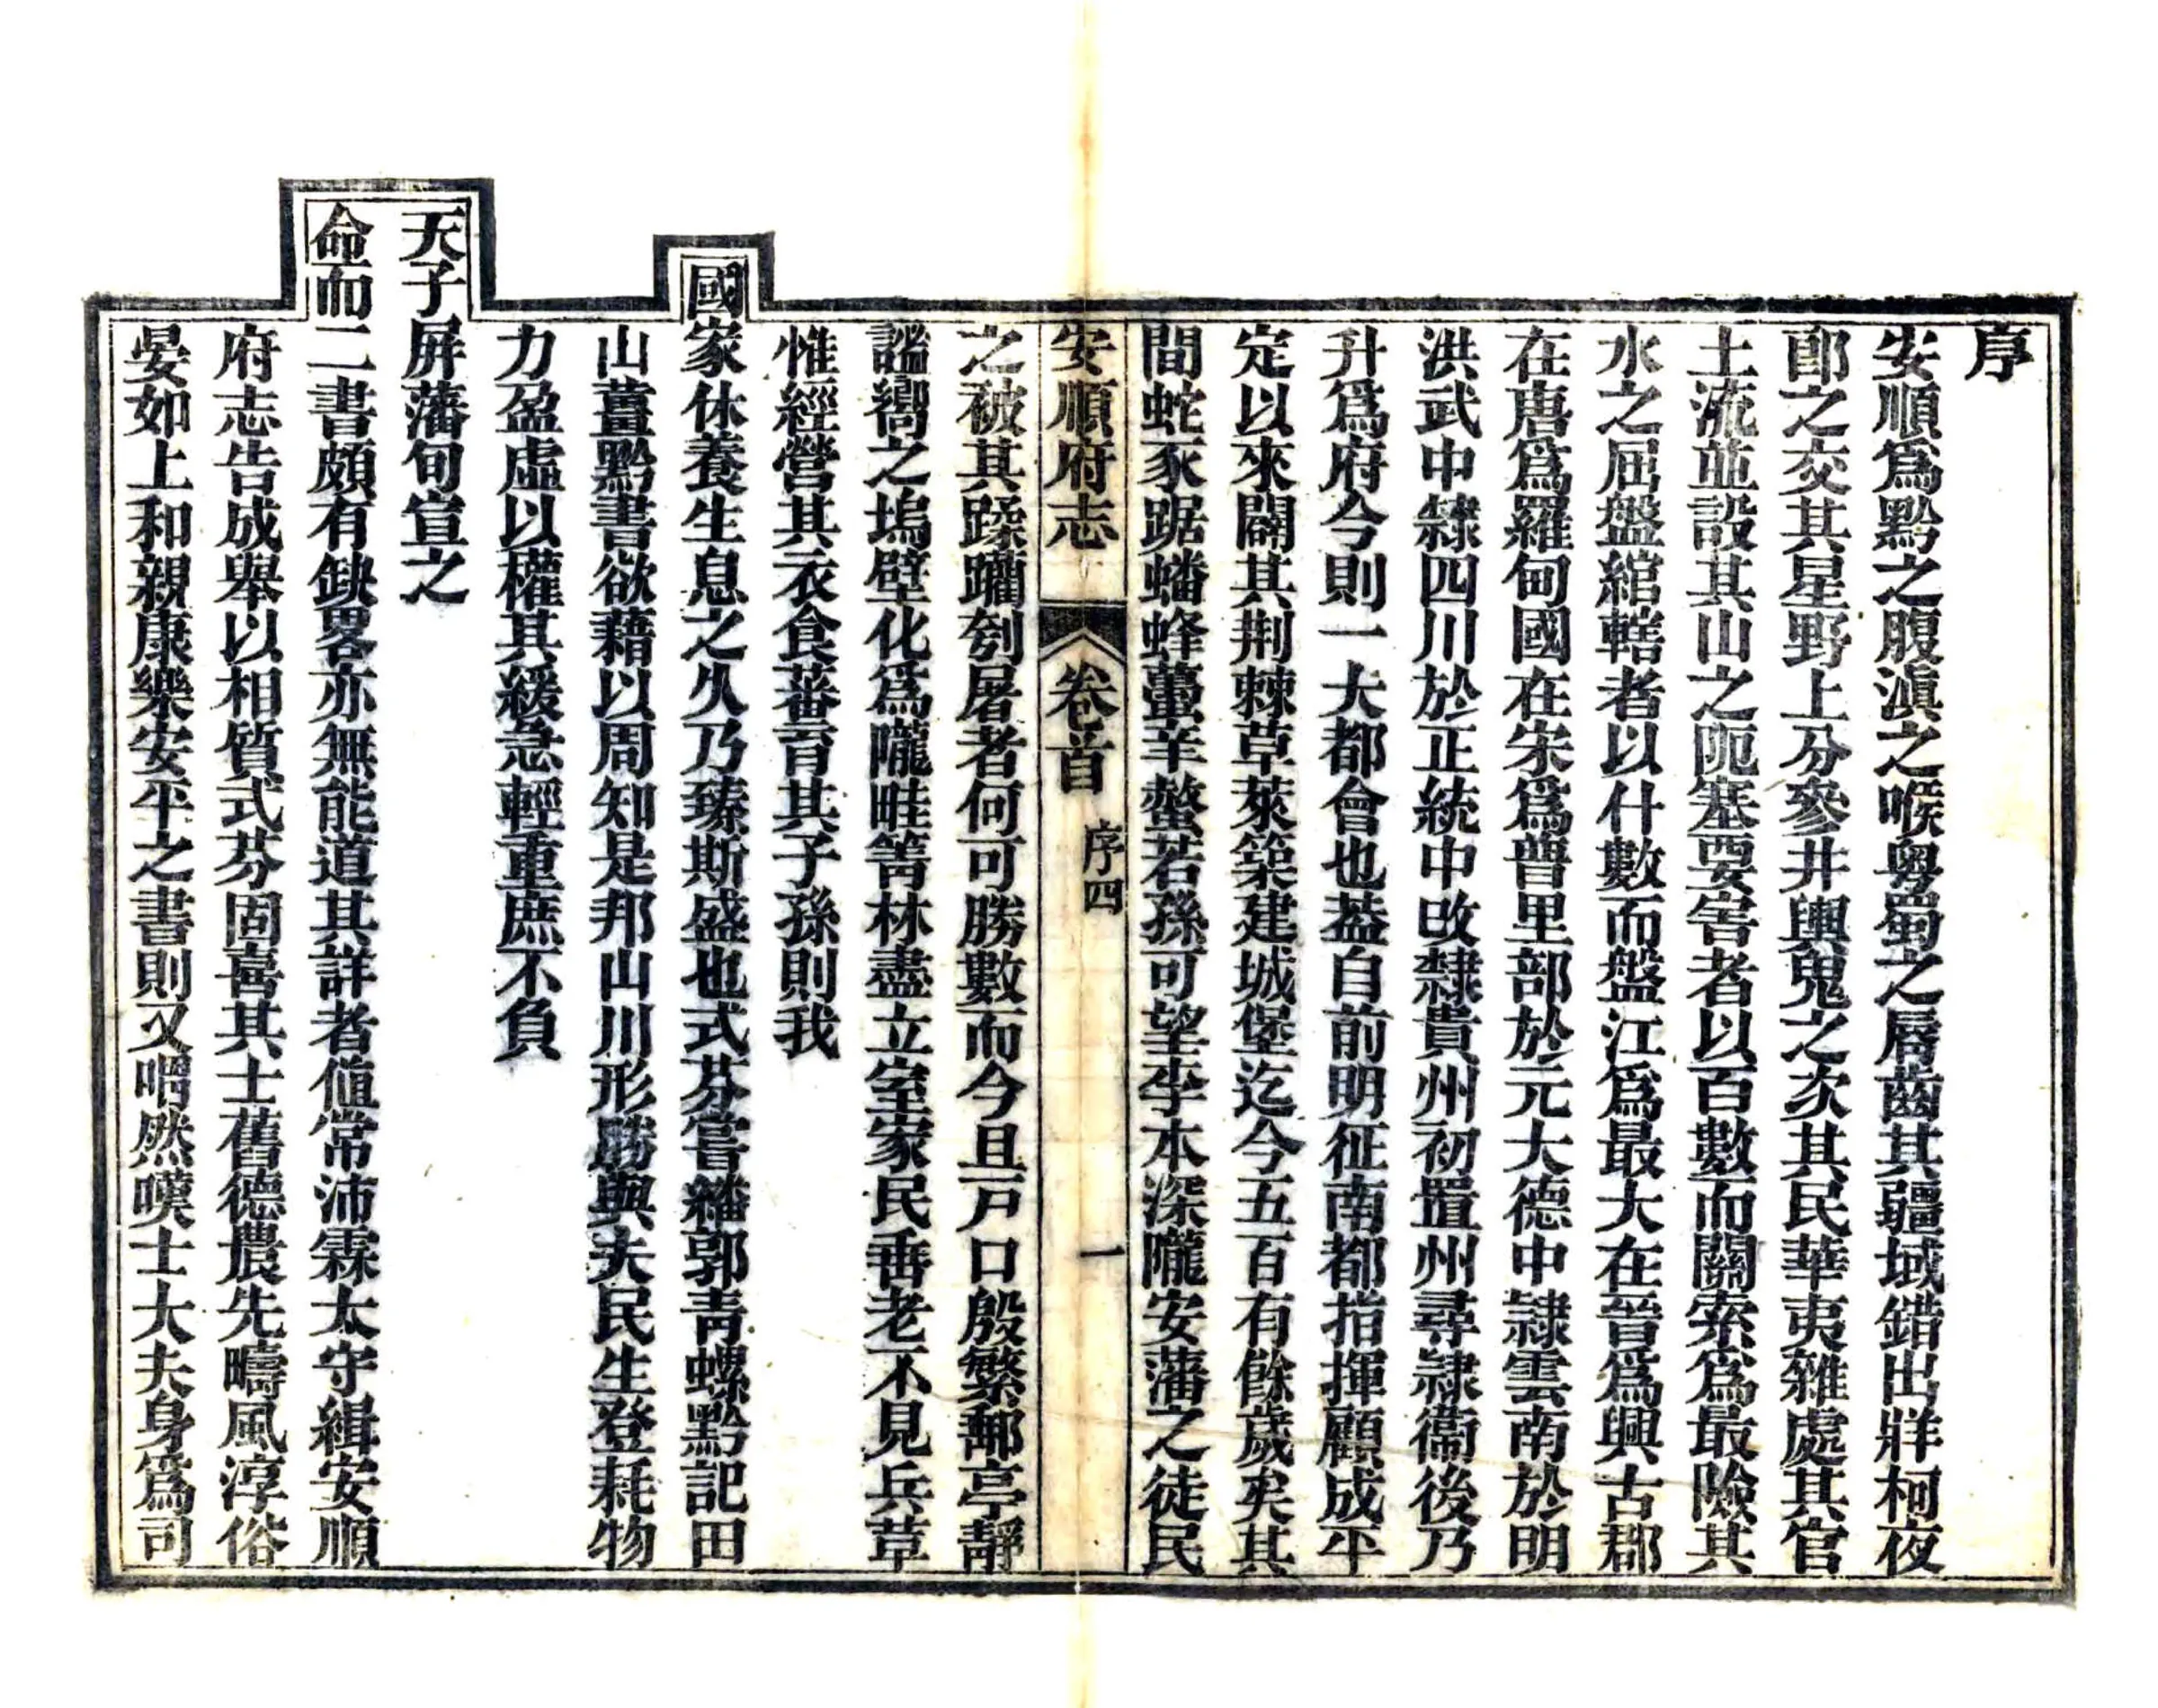 序
安順爲黔之腹滇之喉粵蜀之脣齒其疆域錯出牂柯夜
郎之交其星野上分參井輿鬼之次其民華夷雜處其官
土流並設其山之阨塞要害者以百數而關索爲最險其
水之屈盤綰轄者以什數而盤江爲最大在晉爲興古郡
在唐爲羅甸國在宋爲普里部於元大德中隸雲南於明
洪武中隸四川於正統中改隸貴州初置州尋隸衞後乃
升爲府今則一大都會也葢自前明征南都指揮顧成平
定以來闢其荆棘草萊築建城堡迄今五百有餘歲矣其
間蛇豕踞蟠蜂蠆辛螫若孫可望李本深隴安藩之徒民
安順府志
卷首
序四
一
之被其蹂躪刳屠者何可勝數而今且戸口殷繁鄣亭靜
謐嚮之塢壁化爲隴畦箐林盡立室家民垂老不見兵革
惟經營其衣食蕃育其子孫則我
國家休養生息之久乃臻斯盛也式芬嘗繙郭靑螺黔記田
山薑黔書欲藉以周知是邦山川形勝與夫民生登耗物
力盈虛以權其緩急輕重庶不負
天子屏藩旬宣之
命而二書頗有缺畧亦無能道其詳者値常沛霖太守緝安順
府志告成舉以相質式芬固喜其士舊德農先疇風淳俗
晏如上和親康樂安平之書則又喟然嘆士大夫身爲司